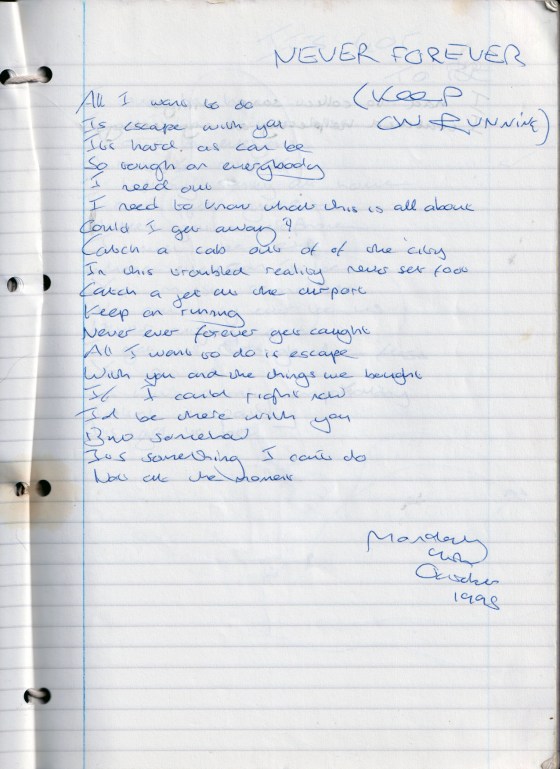 NEVER FOREVER
(KEEP
ON RUNNING)
All I want to do
Is escape with you
Its hard as can be
So tough on everybody
I need out
I need to know what this is all about
Could I get away?
Catch a cab out of of the city
In this troubled reality never set foot
Catch a jet at the airport
Keep on running
Never ever forever get caught
All I want to do is escape
With you and the things we bought
If I could right now
I'd be there with you
But somehow
Its something I cant do
Not at the moment
Monday
October
1998